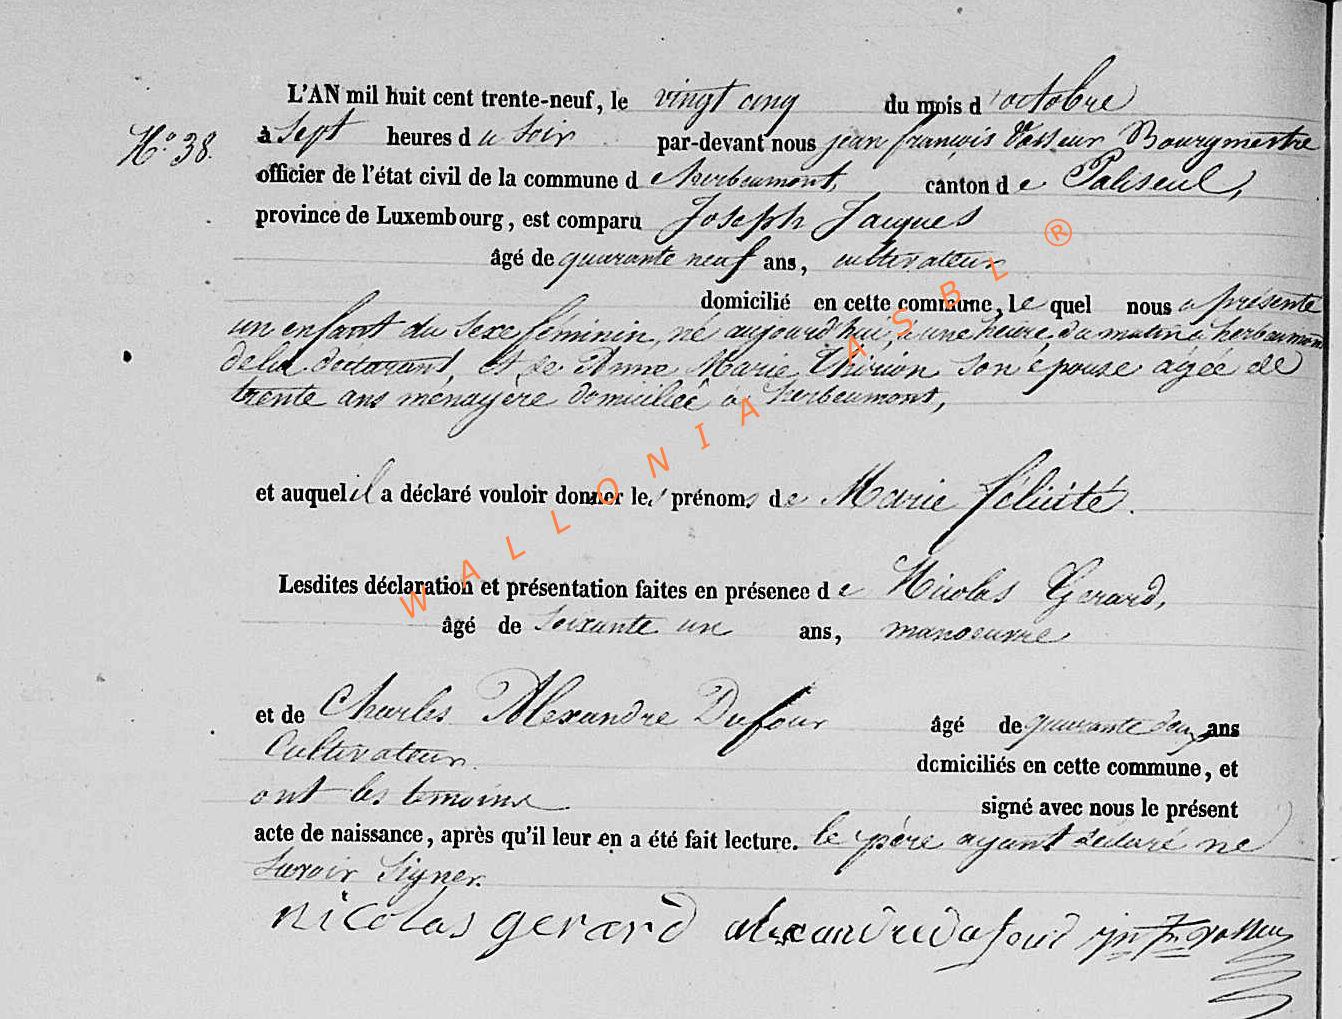 L'AN mil huit cent trente-neuf, le vingt cinq du mois d'octobre
N.° 38. à Sept heures du Soir par-devant nous jean françois Vasseur Bourgmestre
officier de l'état civil de la commune de herbeumont, canton de Paliseul,
province de Luxembourg, est comparu Joseph Jacques
âgé de quarante neuf ans, cultivateur
domicilié en cette commune, le quel nous a présenté
un enfant du Sexe féminin, né aujourd'hui, à une heure du matin à herbeumont
de lui déclarant, et de Anne Marie Thirion Son épouse agée de
trente ans ménagère domiciliée à herbeumont,
et auquel il a déclaré vouloir donner les prénoms de Marie félicité.
Lesdites déclaration et présentation faites en présence de Nicolas Gerard,
âgé de Soixante un ans, manoeuvre
et de Charles Alexandre Dufour âgé de quarante deux ans
Cultivateur domiciliés en cette commune, et
ont les temoins signé avec nous le présent
acte de naissance, après qu'il leur en a été fait lecture. le père ayant déclaré ne
Savoir Signer.
nicolas gerard alexandre dufour
WALLONIA ASBL ®